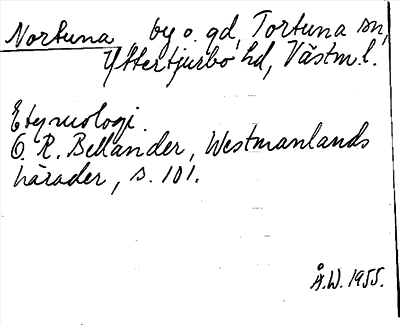 Nortuna by o. gd, Tortuna sn,
Yttertjurbo hd, Västm.l.
Etymologi.
O. R. Bellander, Westmanlands
härader, s. 101.
Å.W. 1955.